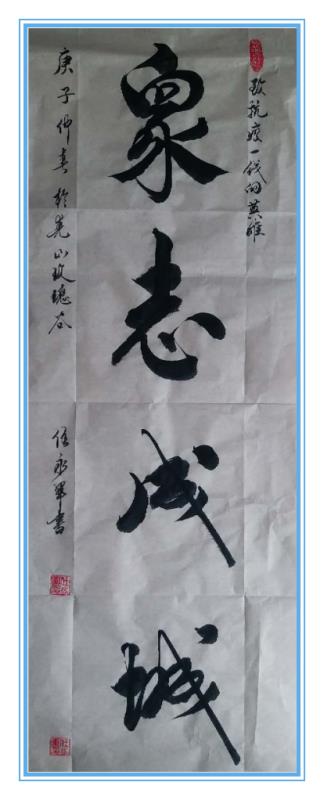 致抗疫一线的英雄
衆志成城
庚子仲春於尧山玫瑰谷
任永军書